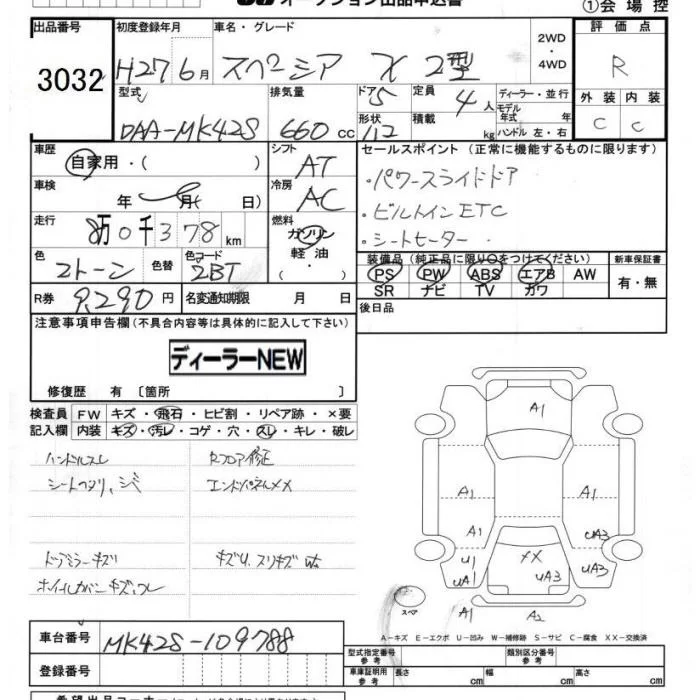 オークション出品申込書
①会場控
出品番号 初度登録年月 車名・グレード 2WD・4WD 評価点
3032 H27 6月 スペーシア X 2型 R
型式 排気量 ドア 5 定員 4人 ディーラー・並行 外装 内装
DAA-MK42S 660cc 形状 積載 kg モデル年式 年 ハンドル 左・右 C C
車歴 自家用・( ) シフト AT セールスポイント (正常に機能するものに限ります)
・パワースライドドア
車検 年 月( 日 冷房 AC ・ビルトインETC
走行 8万0千378km 燃料 ガソリン・軽油・( ) ・シートヒーター
装備品 (純正品に限り○をつけてください) 新車保証書
色 2トーン 色替 色コード 2BT PS PW ABS エアB AW 有・無
SR ナビ TV カワ
R券 9,290円 名変通知期限 月 日 後日品
注意事項申告欄(不具合内容等は具体的に記入して下さい)
ディーラーNEW
修復歴 有〔箇所 〕
検査員 FW キズ・飛石・ヒビ割・リペア跡・×要
記入欄 内装 キズ・汚レ・コゲ・穴・スレ・キレ・破レ
ハンドルスレ Rフロア修正
シートヘタリ、シミ エンドパネルXX
ドアミラーキズ キズU、スリキズ
ホイルカバーキズ、スレ
A1
A1 A1
A1 UA3
U1 XX
UA1 UA3 UA3
スペア A1 A2
A-キズ E-エクボ U-凹み W-補修跡 S-サビ C-腐食 XX-交換済
車台番号 MK42S-109788
登録番号
型式指定番号 参考 類別区分番号 参考
車庫証明用 参考 長さ cm 幅 cm 高さ cm
希望出品コーナー